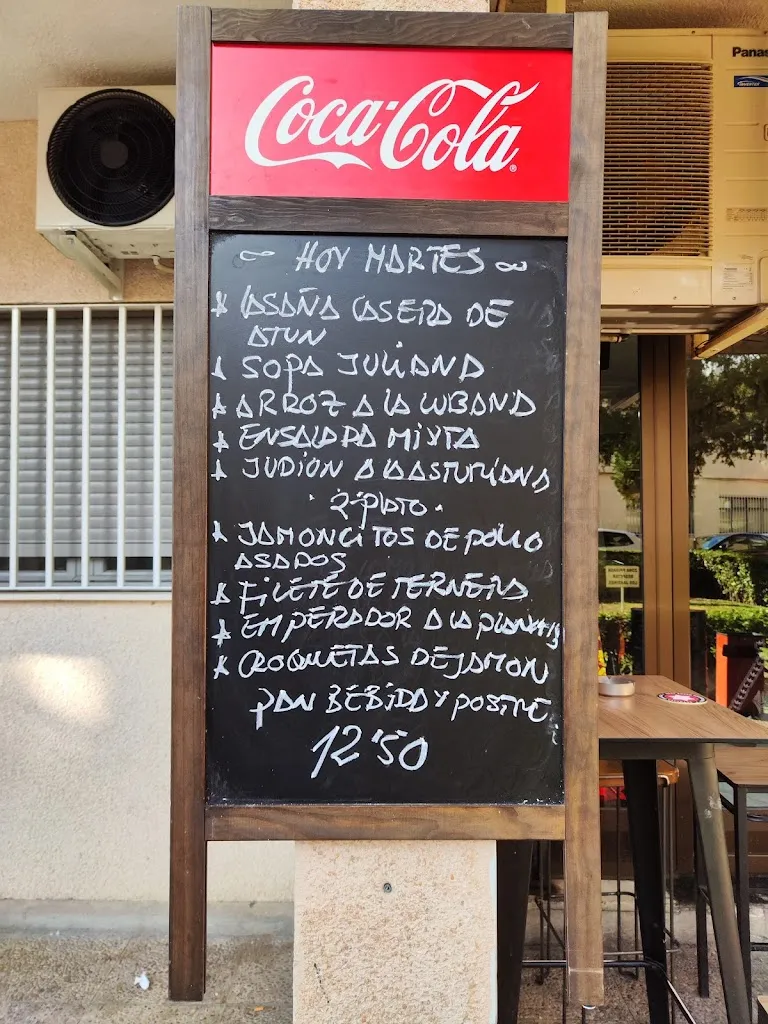 Coca-Cola
Panas
∞ HOY MARTES ∞
* LASAÑA CASERA DE
ATUN
* SOPA JULIANA
* ARROZ A LA CUBANA
* ENSALADA MIXTA
* JUDION A LA ASTURIANA
· 2º PLATO ·
* JAMONCITOS DE POLLO
ASADOS
* FILETE DE TERNERA
* EMPERADOR A LA PLANCHA
* CROQUETAS DE JAMON
PAN BEBIDA Y POSTRE
12'50